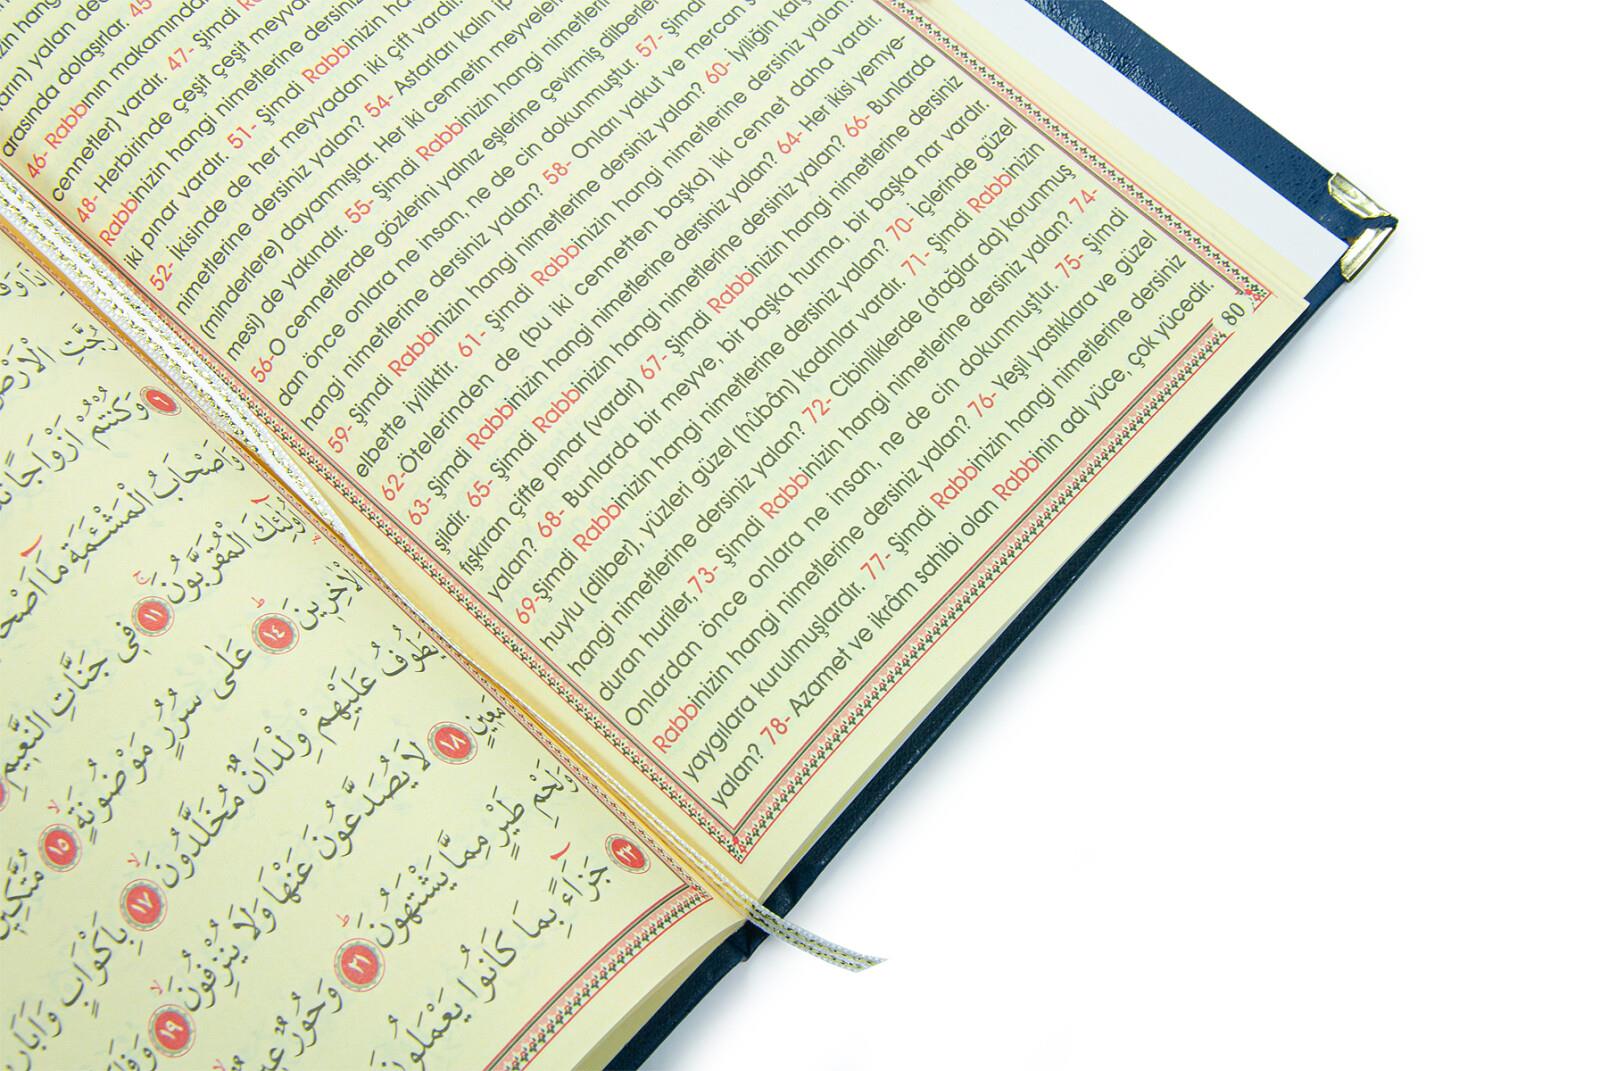 arasında dolaşırlar.
46- Rabbının makamından
cennetler) vardır. 47- Şimdi
48- Herbirinde çeşit çeşit
Rabbinizin hangi nimetlerine dersiniz
iki pınar vardır. 51- Şimdi Rabbinizin
52- ikisinde de her meyvadan iki çift vardır.
nimetlerine dersiniz yalan? 54- Astarları kalın
(minderlere) dayanmışlar. Her iki cennetin
mesi) de yakındır. 55- Şimdi Rabbinizin hangi
56-O cennetlerde gözlerini yalnız eşlerine çevirmiş
dan önce onlara ne insan, ne de cin dokunmuştur. 57- Şimdi
hangi nimetlerine dersiniz yalan? 58- Onları yakut ve mercan
59- Şimdi Rabbinizin hangi nimetlerine dersiniz yalan? 60- İyiliğin
elbette iyiliktir. 61- Şimdi Rabbinizin hangi nimetlerine dersiniz yalan
62-Ötelerinden de (bu iki cennetten başka) iki cennet daha vardır.
63- Şimdi Rabbinizin hangi nimetlerine dersiniz yalan? 64- Her ikisi yemye-
şildir. 65- Şimdi Rabbinizin hangi nimetlerine dersiniz yalan? 66- Bunlarda
fışkıran çifte pınar (vardır) 67- Şimdi Rabbinizin hangi nimetlerine dersiniz
yalan? 68- Bunlarda bir meyve, bir başka hurma, bir başka nar vardır.
69-Şimdi Rabbinizin hangi nimetlerine dersiniz yalan? 70- İçlerinde güzel
huylu (dilber), yüzleri güzel (hûbân) kadınlar vardır. 71- Şimdi Rabbinizin
hangi nimetlerine dersiniz yalan? 72- Cibinliklerde (otağlar da) korunmuş
duran huriler,73- Şimdi Rabbinizin hangi nimetlerine dersiniz yalan? 74-
Onlardan önce onlara ne insan, ne de cin dokunmuştur. 75- Şimdi
Rabbinizin hangi nimetlerine dersiniz yalan? 76- Yeşil yastıklara ve güzel
yaygılara kurulmuşlardır. 77- Şimdi Rabbinizin hangi nimetlerine dersiniz
yalan? 78- Azamet ve ikrâm sahibi olan Rabbinin adı yüce, çok yücedir.
80
رُجَّتِ الْاَرْضُ
٦ وَكُنْتُمْ اَزْوَاجًا
وَاَصْحَابُ الْمَشْئَمَةِ مَا
اُولٰٓئِكَ الْمُقَرَّبُونَ ١١ فِى جَنَّاتِ النَّعِيمِ
الْاٰخِرِينَ ١٤ عَلٰى سُرُرٍ مَوْضُونَةٍ ١٥
يَطُوفُ عَلَيْهِمْ وِلْدَانٌ مُخَلَّدُونَ ١٧ بِاَكْوَابٍ
مَعِينٍ ١٨ لَا يُصَدَّعُونَ عَنْهَا وَلَا يُنْزِفُونَ ١٩
وَلَحْمِ طَيْرٍ مِمَّا يَشْتَهُونَ ٢١ وَحُورٌ
٢٣ جَزَٓاءً بِمَا كَانُوا يَعْمَلُونَ